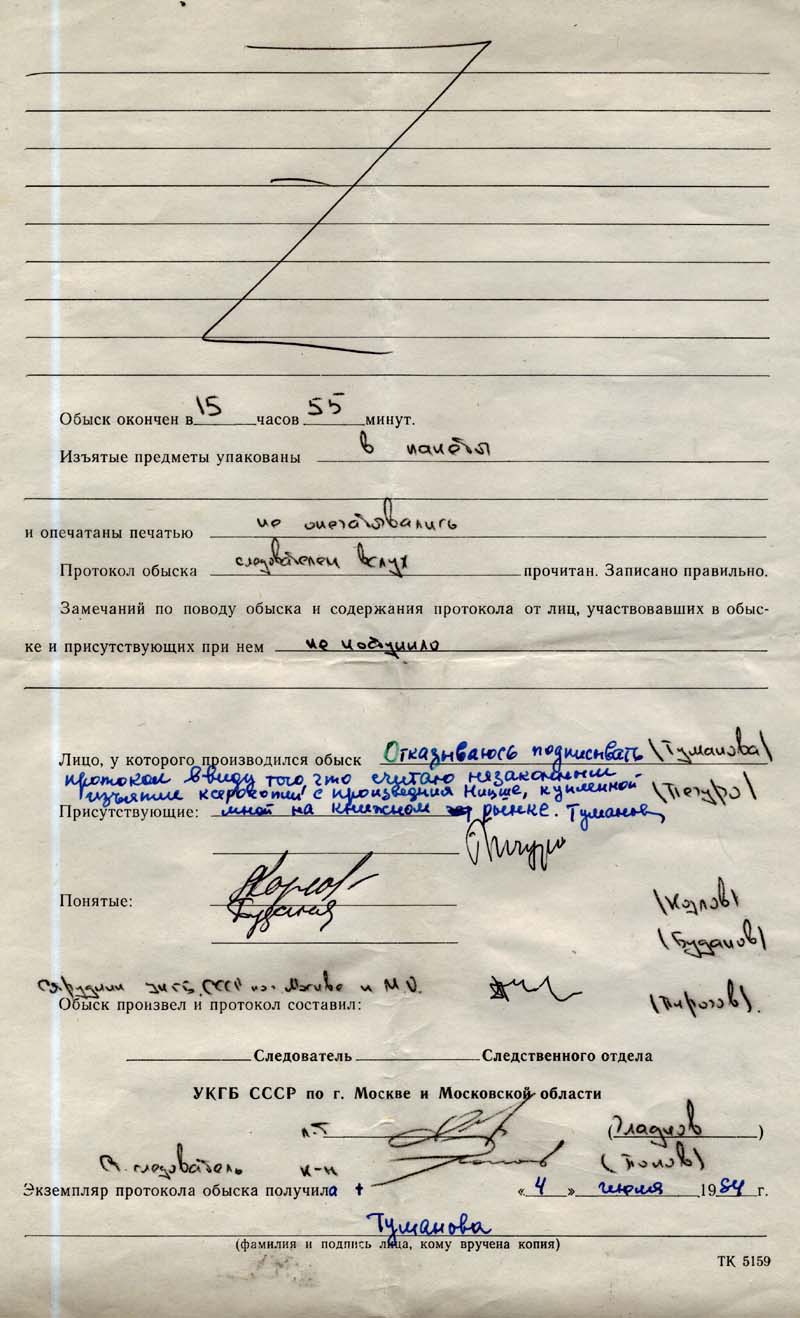 Обыск окончен в 15 часов 55 минут.
Изъятые предметы упакованы в пакет
и опечатаны печатью не опечатывались
Протокол обыска следователем вслух прочитан. Записано правильно.
Замечаний по поводу обыска и содержания протокола от лиц, участвовавших в обыс-
ке и присутствующих при нем не поступило
Лицо, у которого производился обыск Отказываюсь подписывать \Туманова\
протокол ввиду того что считаю незаконным
изъятие ксерокопии с произведния Ницше, купленной
Присутствующие: мной на книжном рынке. Туманова
Понятые: \Козлов\
\Буданов\
УКГБ СССР по г. Москве и М.О.
Обыск произвел и протокол составил: \Пирогов\.
Следователь Следственного отдела
УКГБ СССР по г. Москве и Московской области
к-н (Гладков)
Ст. следователь к-н (Попов)
Экземпляр протокола обыска получила «4» июля 1984 г.
Туманова
(фамилия и подпись лица, кому вручена копия)
ТК 5159